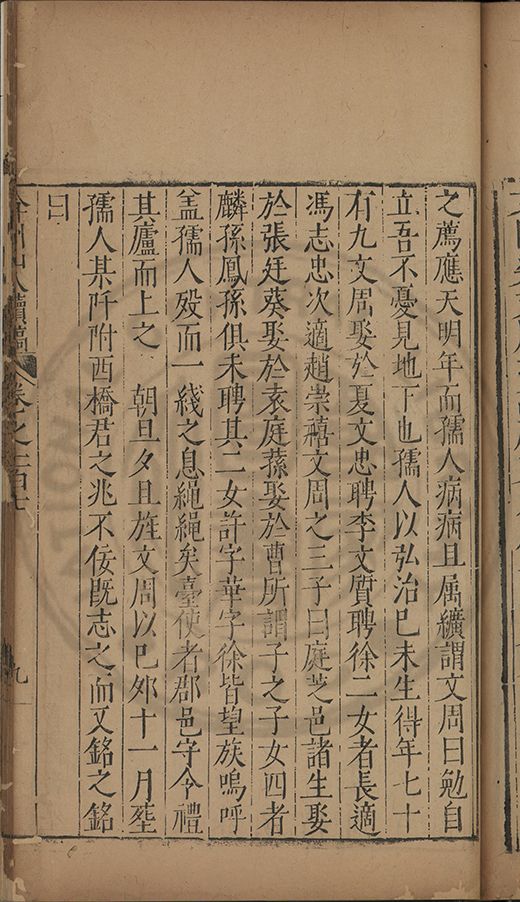 之薦應天明年而孺人病病且属纊謂文周曰勉自
立吾不憂見地下也孺人以弘治巳未生得年七十
有九文周娶於夏文忠聘李文質聘徐二女者長適
馮志忠次適趙崇禧文周之三子曰庭芝邑諸生娶
於張廷葵娶於袁庭蓀娶於曹所謂子之子女四者
麟孫鳳孫俱未聘其二女許字華字徐皆望族嗚呼
盖孺人殁而一綫之息繩繩矣臺使者郡邑守令禮
其廬而上之　朝旦夕且旌文周以巳卯十一月塟
孺人某阡附西橋君之兆不佞既志之而又銘之銘
曰
弇州山人續稿　卷之一百十
九